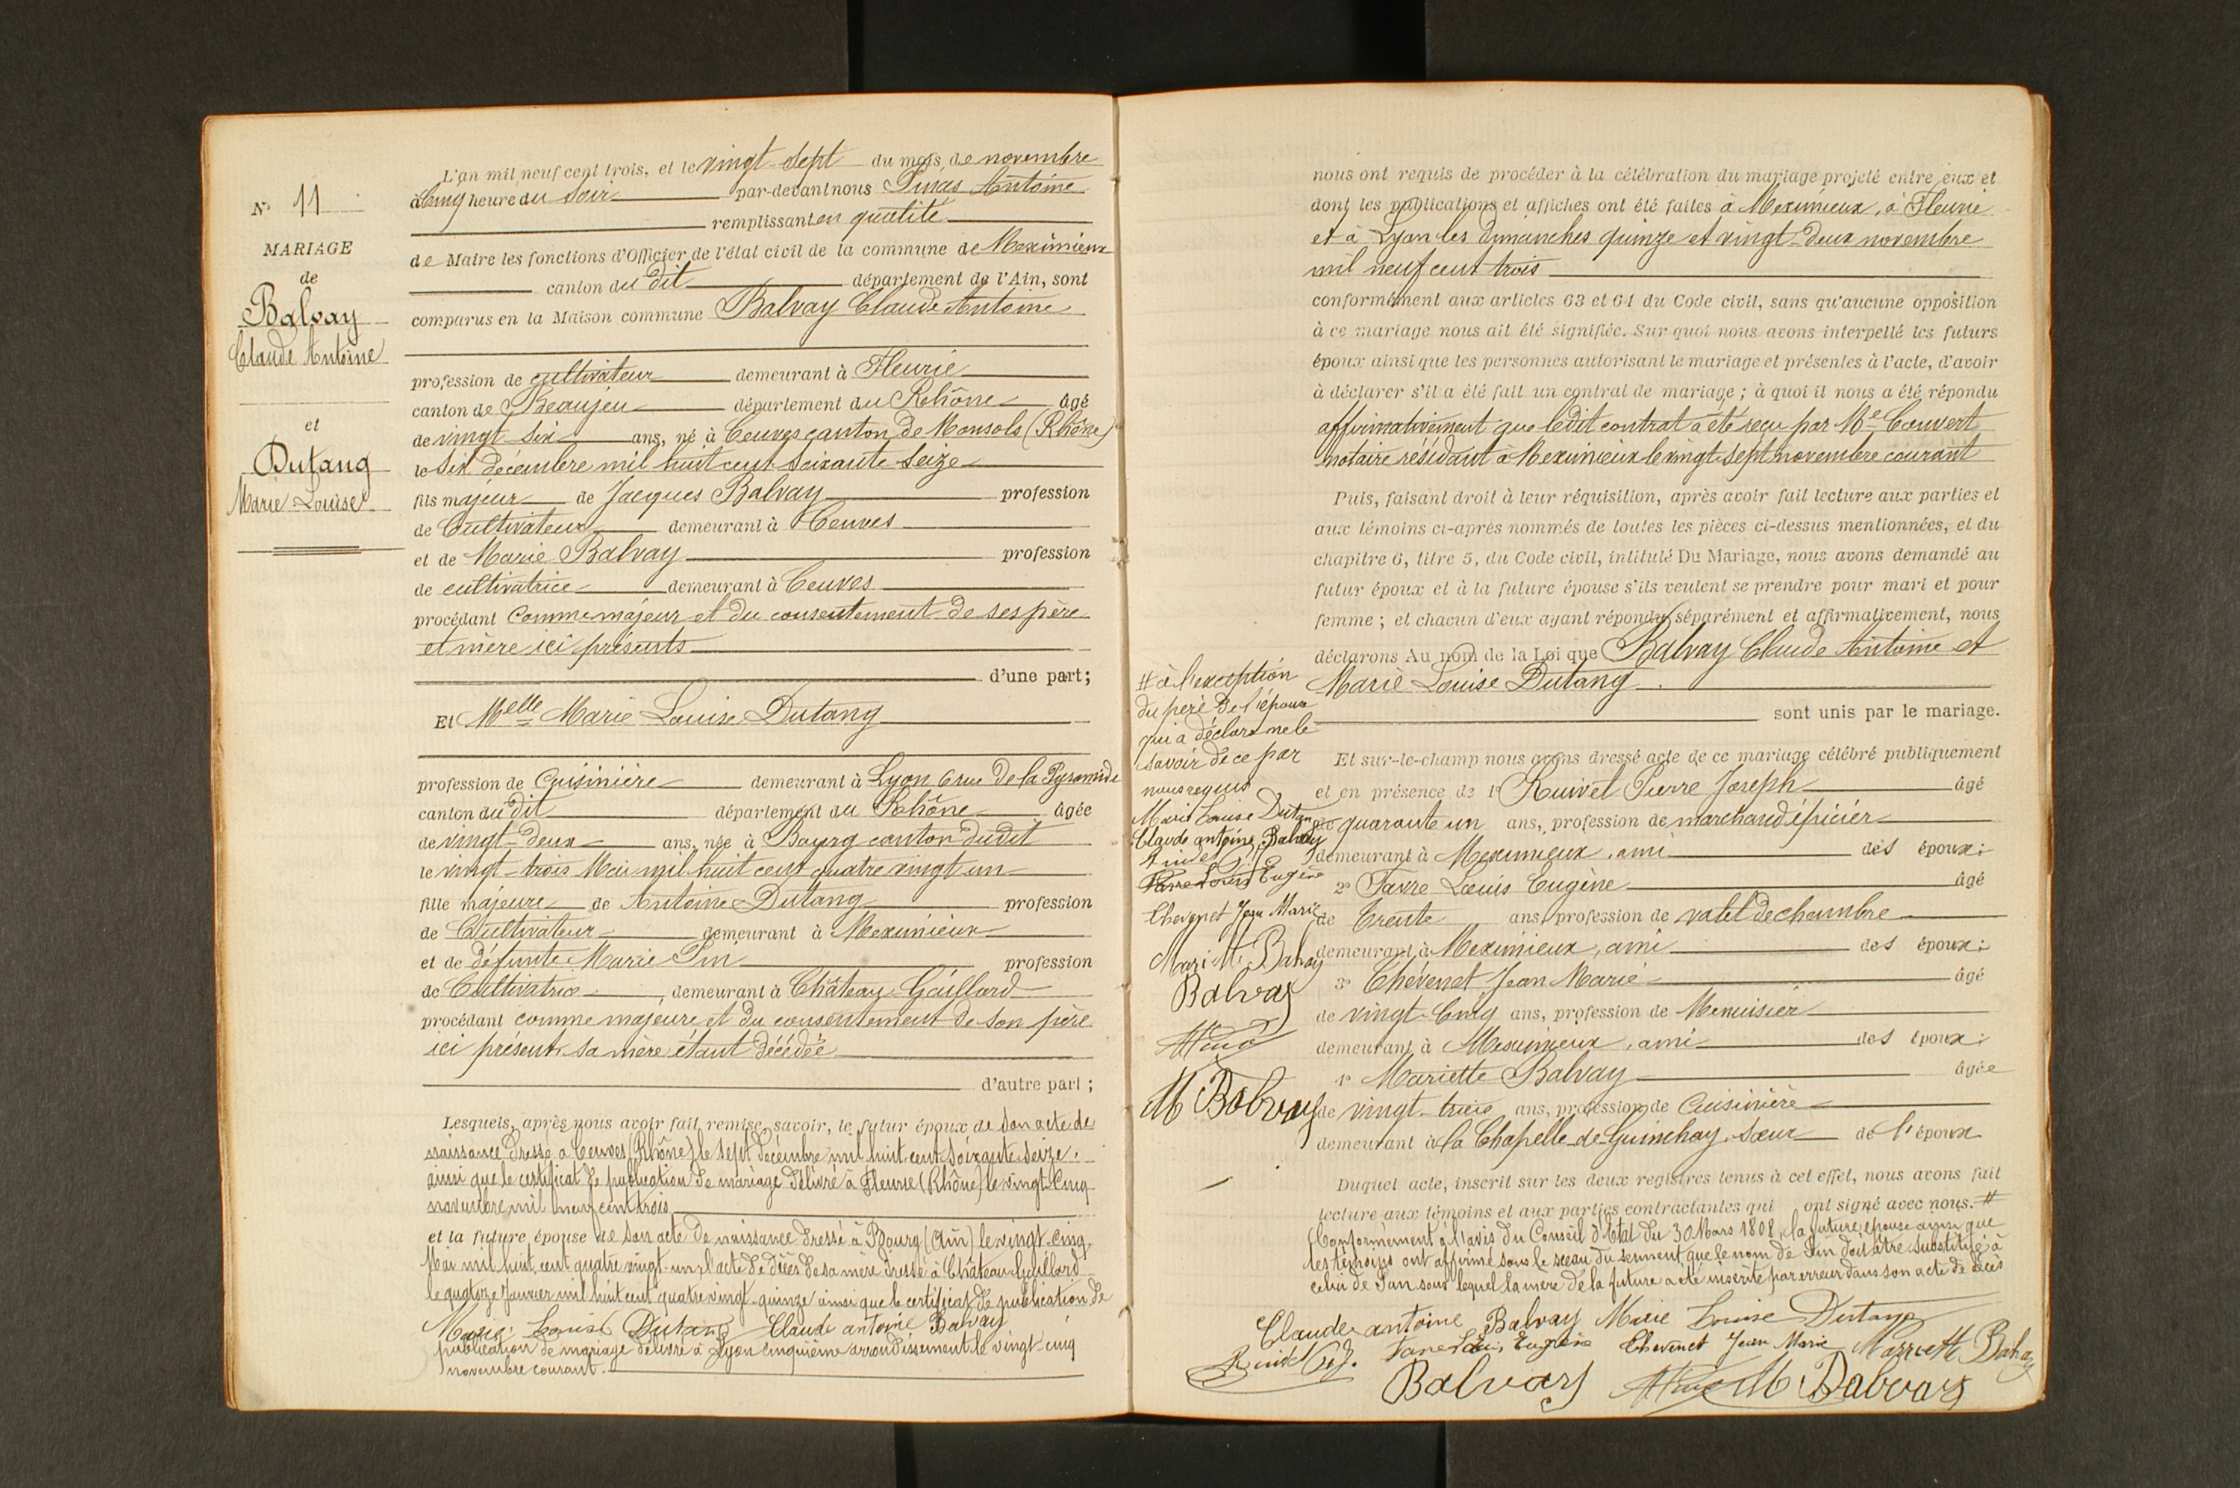 N° 11
MARIAGE
de
Balvay
Claude Antoine
et
Dutang
Marie Louise
L'an mil neuf cent trois, et le vingt-sept du mois de novembre
à Cinq heure du Soir par-devant nous Antoine
remplissant en qualité
de Maire les fonctions d'Officier de l'état civil de la commune de Meximieux
canton du dit département de l'Ain, sont
comparus en la Maison commune Balvay Claude Antoine
profession de cultivateur demeurant à Fleurie
canton de Beaujeu département du Rhône âgé
de vingt-six ans, né à Cenves canton de Monsols (Rhône)
le six décembre mil huit cent soixante-seize
fils majeur de Jacques Balvay profession
de Cultivateur demeurant à Cenves
et de Marie Balvay profession
de cultivatrice demeurant à Cenves
procédant comme majeur et du consentement de ses père
et mère ici présents
d'une part;
Et Melle Marie Louise Dutang
profession de Cuisinière demeurant à Lyon 6 rue de la Pyramide
canton du dit département du Rhône âgée
de vingt-deux ans, née à Bourg canton dudit
le vingt-trois Mai mil huit cent quatre vingt un
fille majeure de Antoine Dutang profession
de Cultivateur demeurant à Meximieux
et de défunte Marie Pin profession
de Cultivatrice, demeurant à Château-Gaillard
procédant comme majeure et du consentement de son père
ici présent, sa mère étant décédée
d'autre part;
Lesquels, après nous avoir fait remise, savoir, le futur époux de son acte de
naissance dressé à Cenves (Rhône) le sept décembre mil huit cent soixante seize.
ainsi que le certificat de publication de mariage délivré à Fleurie (Rhône) le vingt-cinq
novembre mil neuf cent trois
et la future épouse de son acte de naissance dressé à Bourg (Ain) le vingt-cinq
Mai mil huit cent quatre vingt-un, l'acte de décès de sa mère dressé à Château-Gaillard
le quatorze Janvier mil huit cent quatre vingt-quinze ainsi que le certificat de publication de
Marie Louise Dutang Claude antoine Balvay
publication de mariage délivré à Lyon cinquième arrondissement le vingt-cinq
novembre courant.
nous ont requis de procéder à la célébration du mariage projeté entre eux et
dont les publications et affiches ont été faites à Meximieux, à Fleurie
et à Lyon les dimanches quinze et vingt-deux novembre
mil neuf cent trois
conformément aux articles 63 et 64 du Code civil, sans qu'aucune opposition
à ce mariage nous ait été signifiée. Sur quoi nous avons interpellé les futurs
époux ainsi que les personnes autorisant le mariage et présentes à l'acte, d'avoir
à déclarer s'il a été fait un contrat de mariage ; à quoi il nous a été répondu
affirmativement que ledit contrat a été reçu par Me Convert
notaire résidant à Meximieux le vingt-sept novembre courant
Puis, faisant droit à leur réquisition, après avoir fait lecture aux parties et
aux témoins ci-après nommés de toutes les pièces ci-dessus mentionnées, et du
chapitre 6, titre 5, du Code civil, intitulé Du Mariage, nous avons demandé au
futur époux et à la future épouse s'ils veulent se prendre pour mari et pour
femme ; et chacun d'eux ayant répondu séparément et affirmativement, nous
déclarons Au nom de la Loi que Balvay Claude Antoine et
Marie Louise Dutang.
sont unis par le mariage.
Et sur-le-champ nous avons dressé acte de ce mariage célébré publiquement
et en présence de 1° Ruivet Pierre Joseph âgé
de quarante un ans, profession de marchand épicier
demeurant à Meximieux, ami des époux;
2° Favre Louis Eugène âgé
de Trente ans, profession de valet de chambre
demeurant à Meximieux, ami des époux;
3° Chévenet Jean Marie âgé
de vingt-Cinq ans, profession de Menuisier
demeurant à Meximieux, ami des époux;
4° Mariette Balvay âgée
de vingt-trois ans, profession de Cuisinière
demeurant à la Chapelle-de-Guinchay, sœur de l'époux
Duquel acte, inscrit sur les deux registres tenus à cet effet, nous avons fait
lecture aux témoins et aux parties contractantes qui ont signé avec nous. #
Conformément à l'avis du Conseil d'Etat du 30 Mars 1808, la future épouse ainsi que
les témoins ont affirmé sous le sceau du serment que le nom de Pin doit être substitué à
celui de Pan sous lequel la mère de la future a été inscrite par erreur dans son acte de décès
Claude antoine Balvay Marie Louise Dutang
Ruivet P J. Favre Louis Eugène Chevenet Jean Marie Mariette Balvay
Balvay M Balvay
# à l'exception
du père de l'époux
qui a déclaré ne le
savoir de ce par
nous requis
Marie Louise Dutang
Claude antoine Balvay
Ruivet P J
Favre Louis Eugène
Chevenet Jean Marie
Mariette Balvay
Balvay
M Balvay